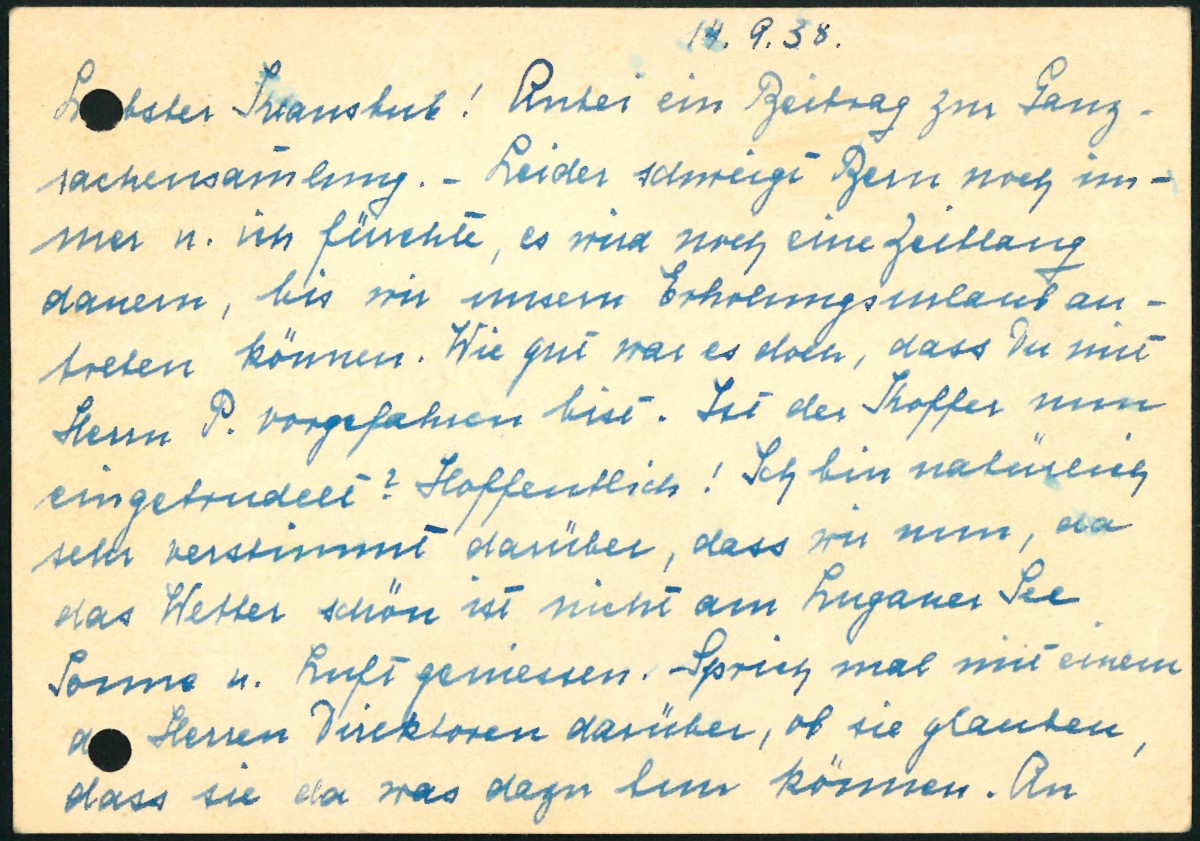 14. 9. 38.
Liebster Kranskub! Anbei ein Beitrag zur Ganz-
sachensamlung. - Leider schweigt Bern noch im-
mer u. ich fürchte, es wird noch eine Zeitlang
dauern, bis wir unsern Erholungsurlaub an-
treten können. Wie gut war es doch, dass Du mit
Herrn P. vorgefahren bist. Ist der Koffer nun
eingetrudelt? Hoffentlich! Ich bin natürlich
sehr verstimmt darüber, dass wir nun, da
das Wetter schön ist nicht am Luganer See
Sonne u. Luft geniessen. - Sprich mal mit einem
d. Herren Direktoren darüber, ob sie glauben,
dass sie da was dazu tun können. An